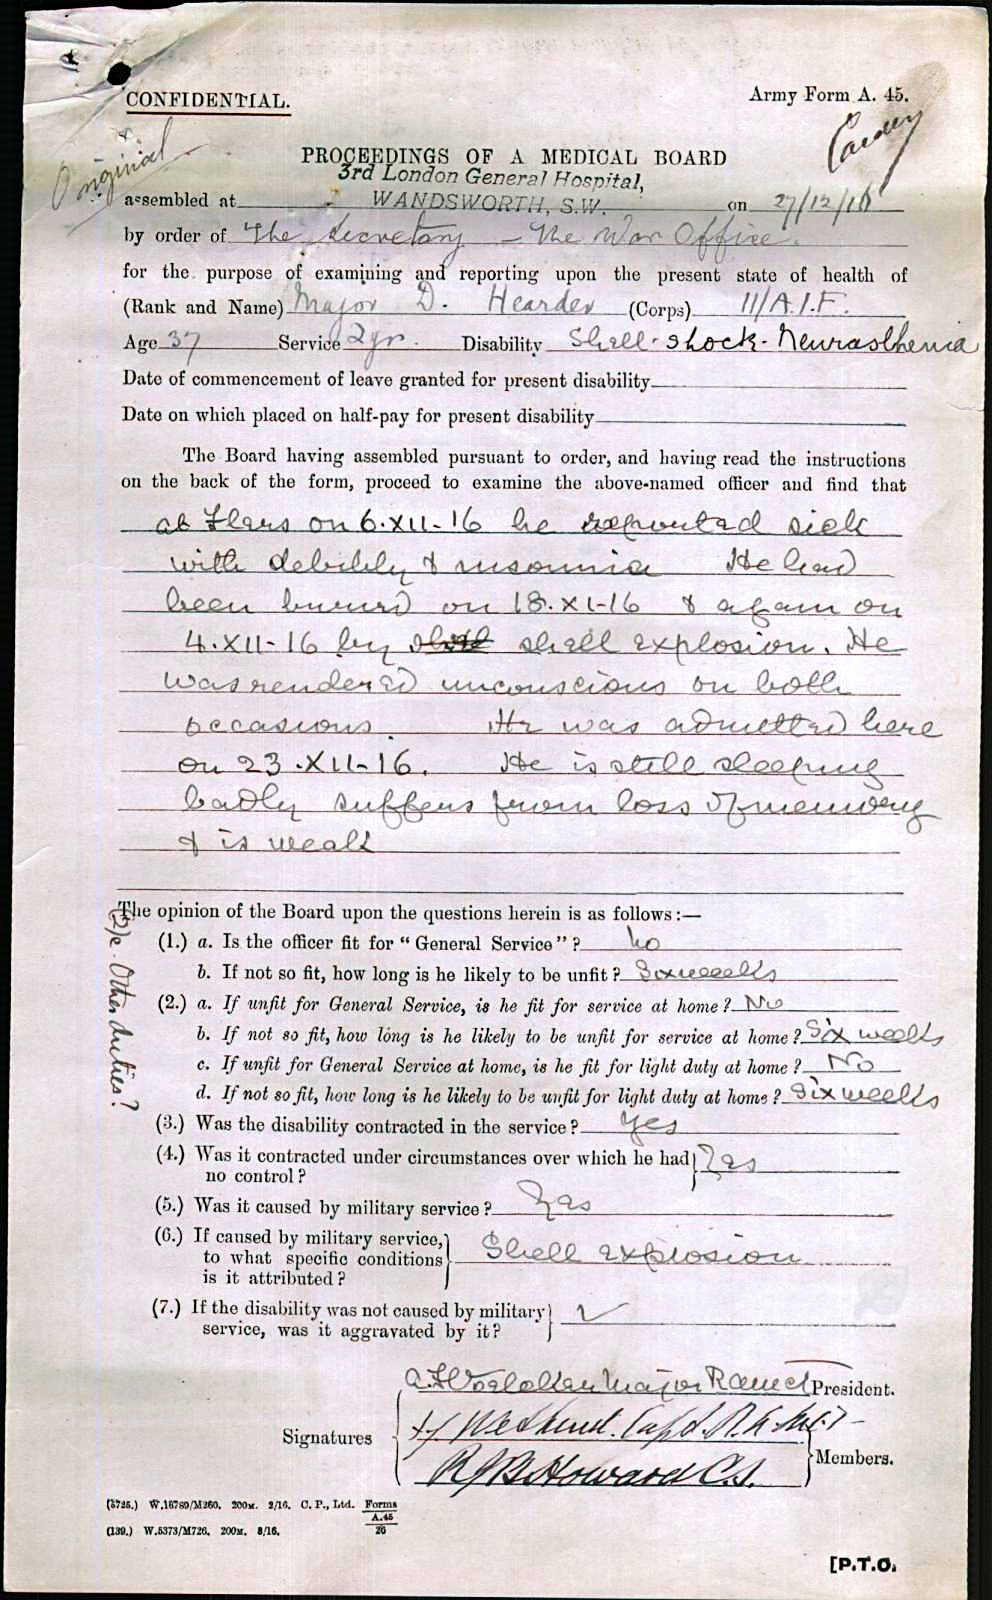 CONFIDENTIAL.
Army Form A. 45.
Original
PROCEEDINGS OF A MEDICAL BOARD
3rd London General Hospital,
assembled at WANDSWORTH, S.W. on 27/12/16
by order of The Secretary - The War Office.
for the purpose of examining and reporting upon the present state of health of
(Rank and Name) Major D. Hearder (Corps) 11/A.I.F.
Age 37 Service 2yrs. Disability Shell-shock-Neurasthenia
Date of commencement of leave granted for present disability
Date on which placed on half-pay for present disability
The Board having assembled pursuant to order, and having read the instructions
on the back of the form, proceed to examine the above-named officer and find that
at Flers on 6.XII-16 he reported sick
with debility & insomnia He had
been buried on 18.XI-16 & again on
4.XII-16 by shell explosion. He
was rendered unconscious on both
occasions. He was admitted here
on 23.XII-16. He is still sleeping
badly suffers from loss of memory
& is weak
The opinion of the Board upon the questions herein is as follows:—
(1.) a. Is the officer fit for "General Service"? No
b. If not so fit, how long is he likely to be unfit? Six weeks
(2.) a. If unfit for General Service, is he fit for service at home? No
b. If not so fit, how long is he likely to be unfit for service at home? Six weeks
c. If unfit for General Service at home, is he fit for light duty at home? No
d. If not so fit, how long is he likely to be unfit for light duty at home? Six weeks
(2)e. Other duties?
(3.) Was the disability contracted in the service? Yes
(4.) Was it contracted under circumstances over which he had } Yes
no control?
(5.) Was it caused by military service? Yes
(6.) If caused by military service,
to what specific conditions } Shell explosion
is it attributed?
(7.) If the disability was not caused by military
service, was it aggravated by it?
Major President.
Signatures Capt.
R J B Howard C.S. Members.
(3725.) W.16789/M260. 200M. 2/16. C. P., Ltd. Forms
A.45
26
(139.) W.5373/M726. 200M. 8/16.
[P.T.O.